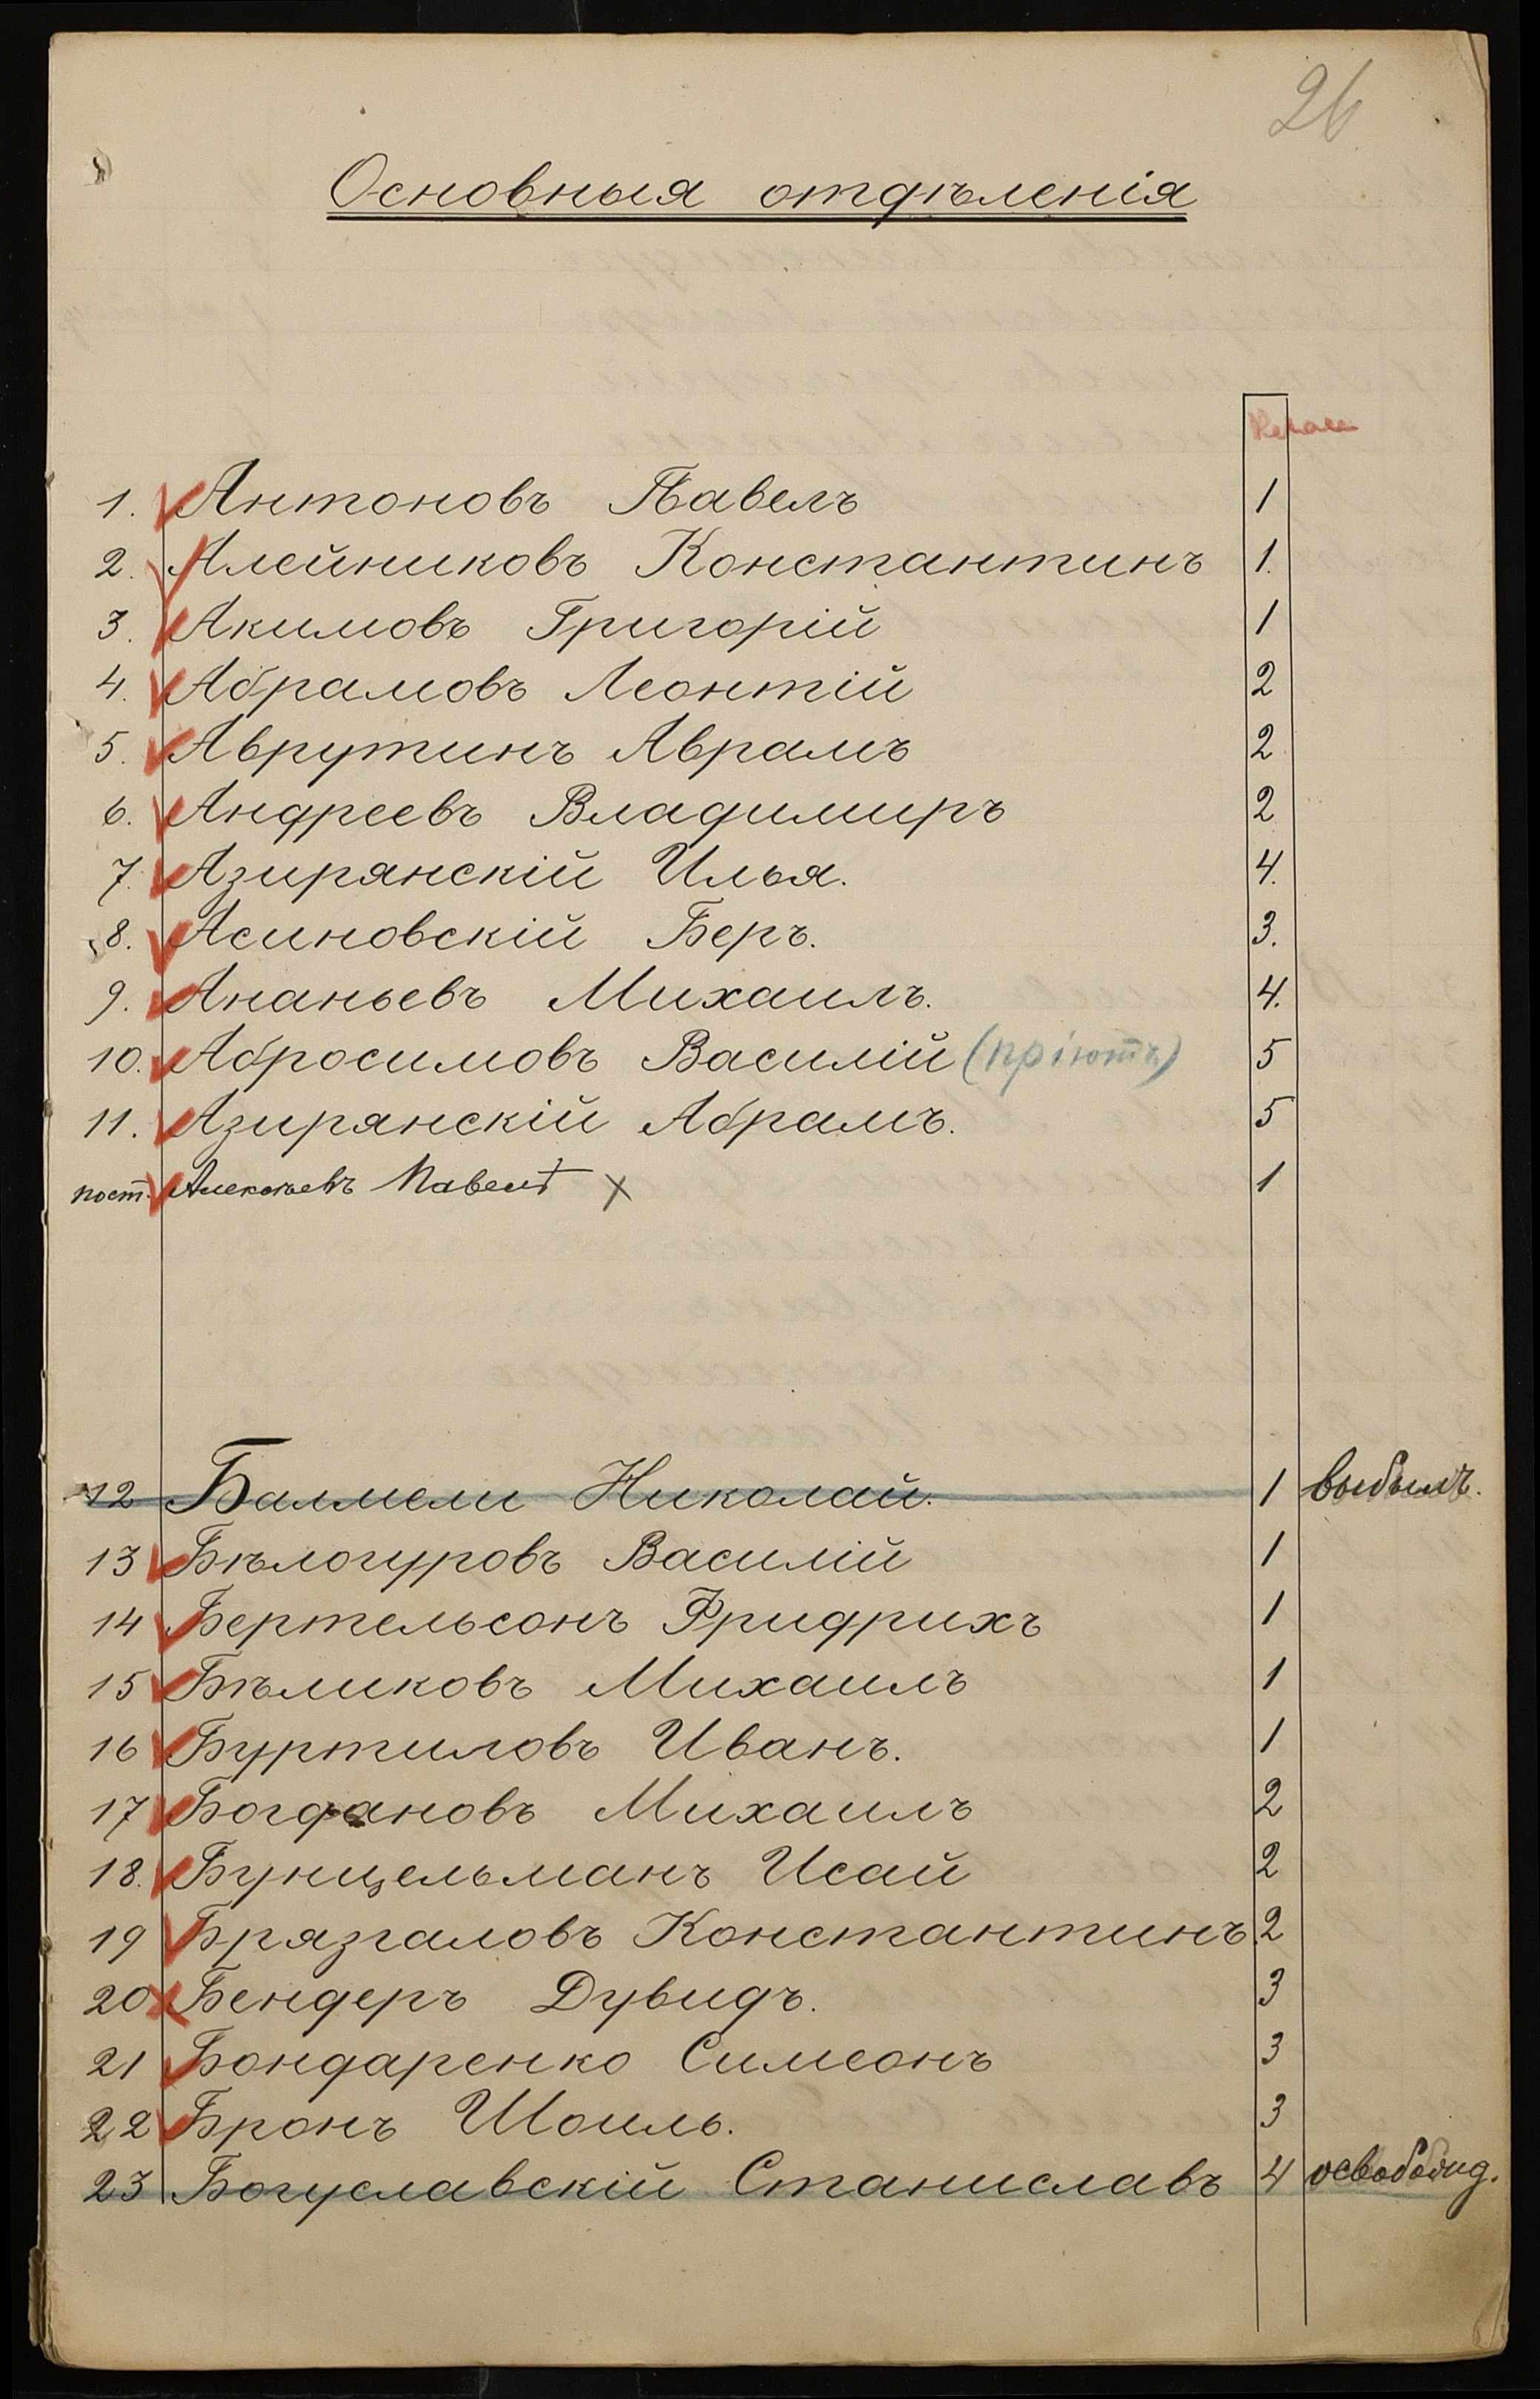 26
Основныя отдѣленія
Класс
1. Антоновъ Павелъ 1
2. Алейниковъ Константинъ 1.
3. Акимовъ Григорій 1
4. Абрамовъ Леонтій 2
5. Аврутинъ Аврамъ 2
6. Андреевъ Владимиръ 2
7. Азирянскій Илья. 4.
8. Асиновскій Беръ. 3.
9. Ананьевъ Михаилъ. 4.
10. Абросимовъ Василій (пріютъ) 5
11. Азирянскій Абрамъ. 5
пост. Алексѣевъ Павелъ х 1
12 Баллмели Николай. 1 выбылъ.
13 Бѣлогуровъ Василій 1
14 Бертельсонъ Фридрихъ 1
15 Бѣликовъ Михаилъ 1
16 Буртиловъ Иванъ. 1
17 Богдановъ Михаилъ 2
18. Бунцельманъ Исай 2
19 Брязгаловъ Константинъ 2
20 Бендеръ Дувидъ. 3
21 Бондаренко Симеонъ 3
22 Бронъ Шоиль. 3
23 Богуславскій Станиславъ 4